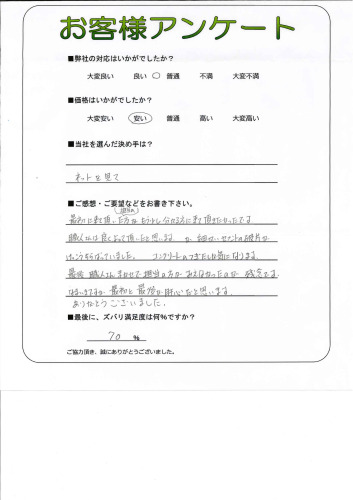 お客様アンケート
■弊社の対応はいかがでしたか？
大変良い 良い ○ 普通 不満 大変不満
■価格はいかがでしたか？
大変安い 安い 普通 高い 大変高い
■当社を選んだ決め手は？
ネットを見て
■ご感想・ご要望などをお書き下さい。
最初に来て頂いた方がもう少し分かる方に来て頂きたかったです。
職人さんは良くやって頂いたと思います。が、細かいセメントの破片が
けっこうちらばっていました。 コンクリートのつぎたしも気になります。
最後 職人さんまかせで担当の方が みえなかったのが 残念です。
なまいきですが 最初と最後が肝心だと思います。
ありがとうございました。
■最後に、ズバリ満足度は何％ですか？
70 ％
ご協力頂き、誠にありがとうございました。